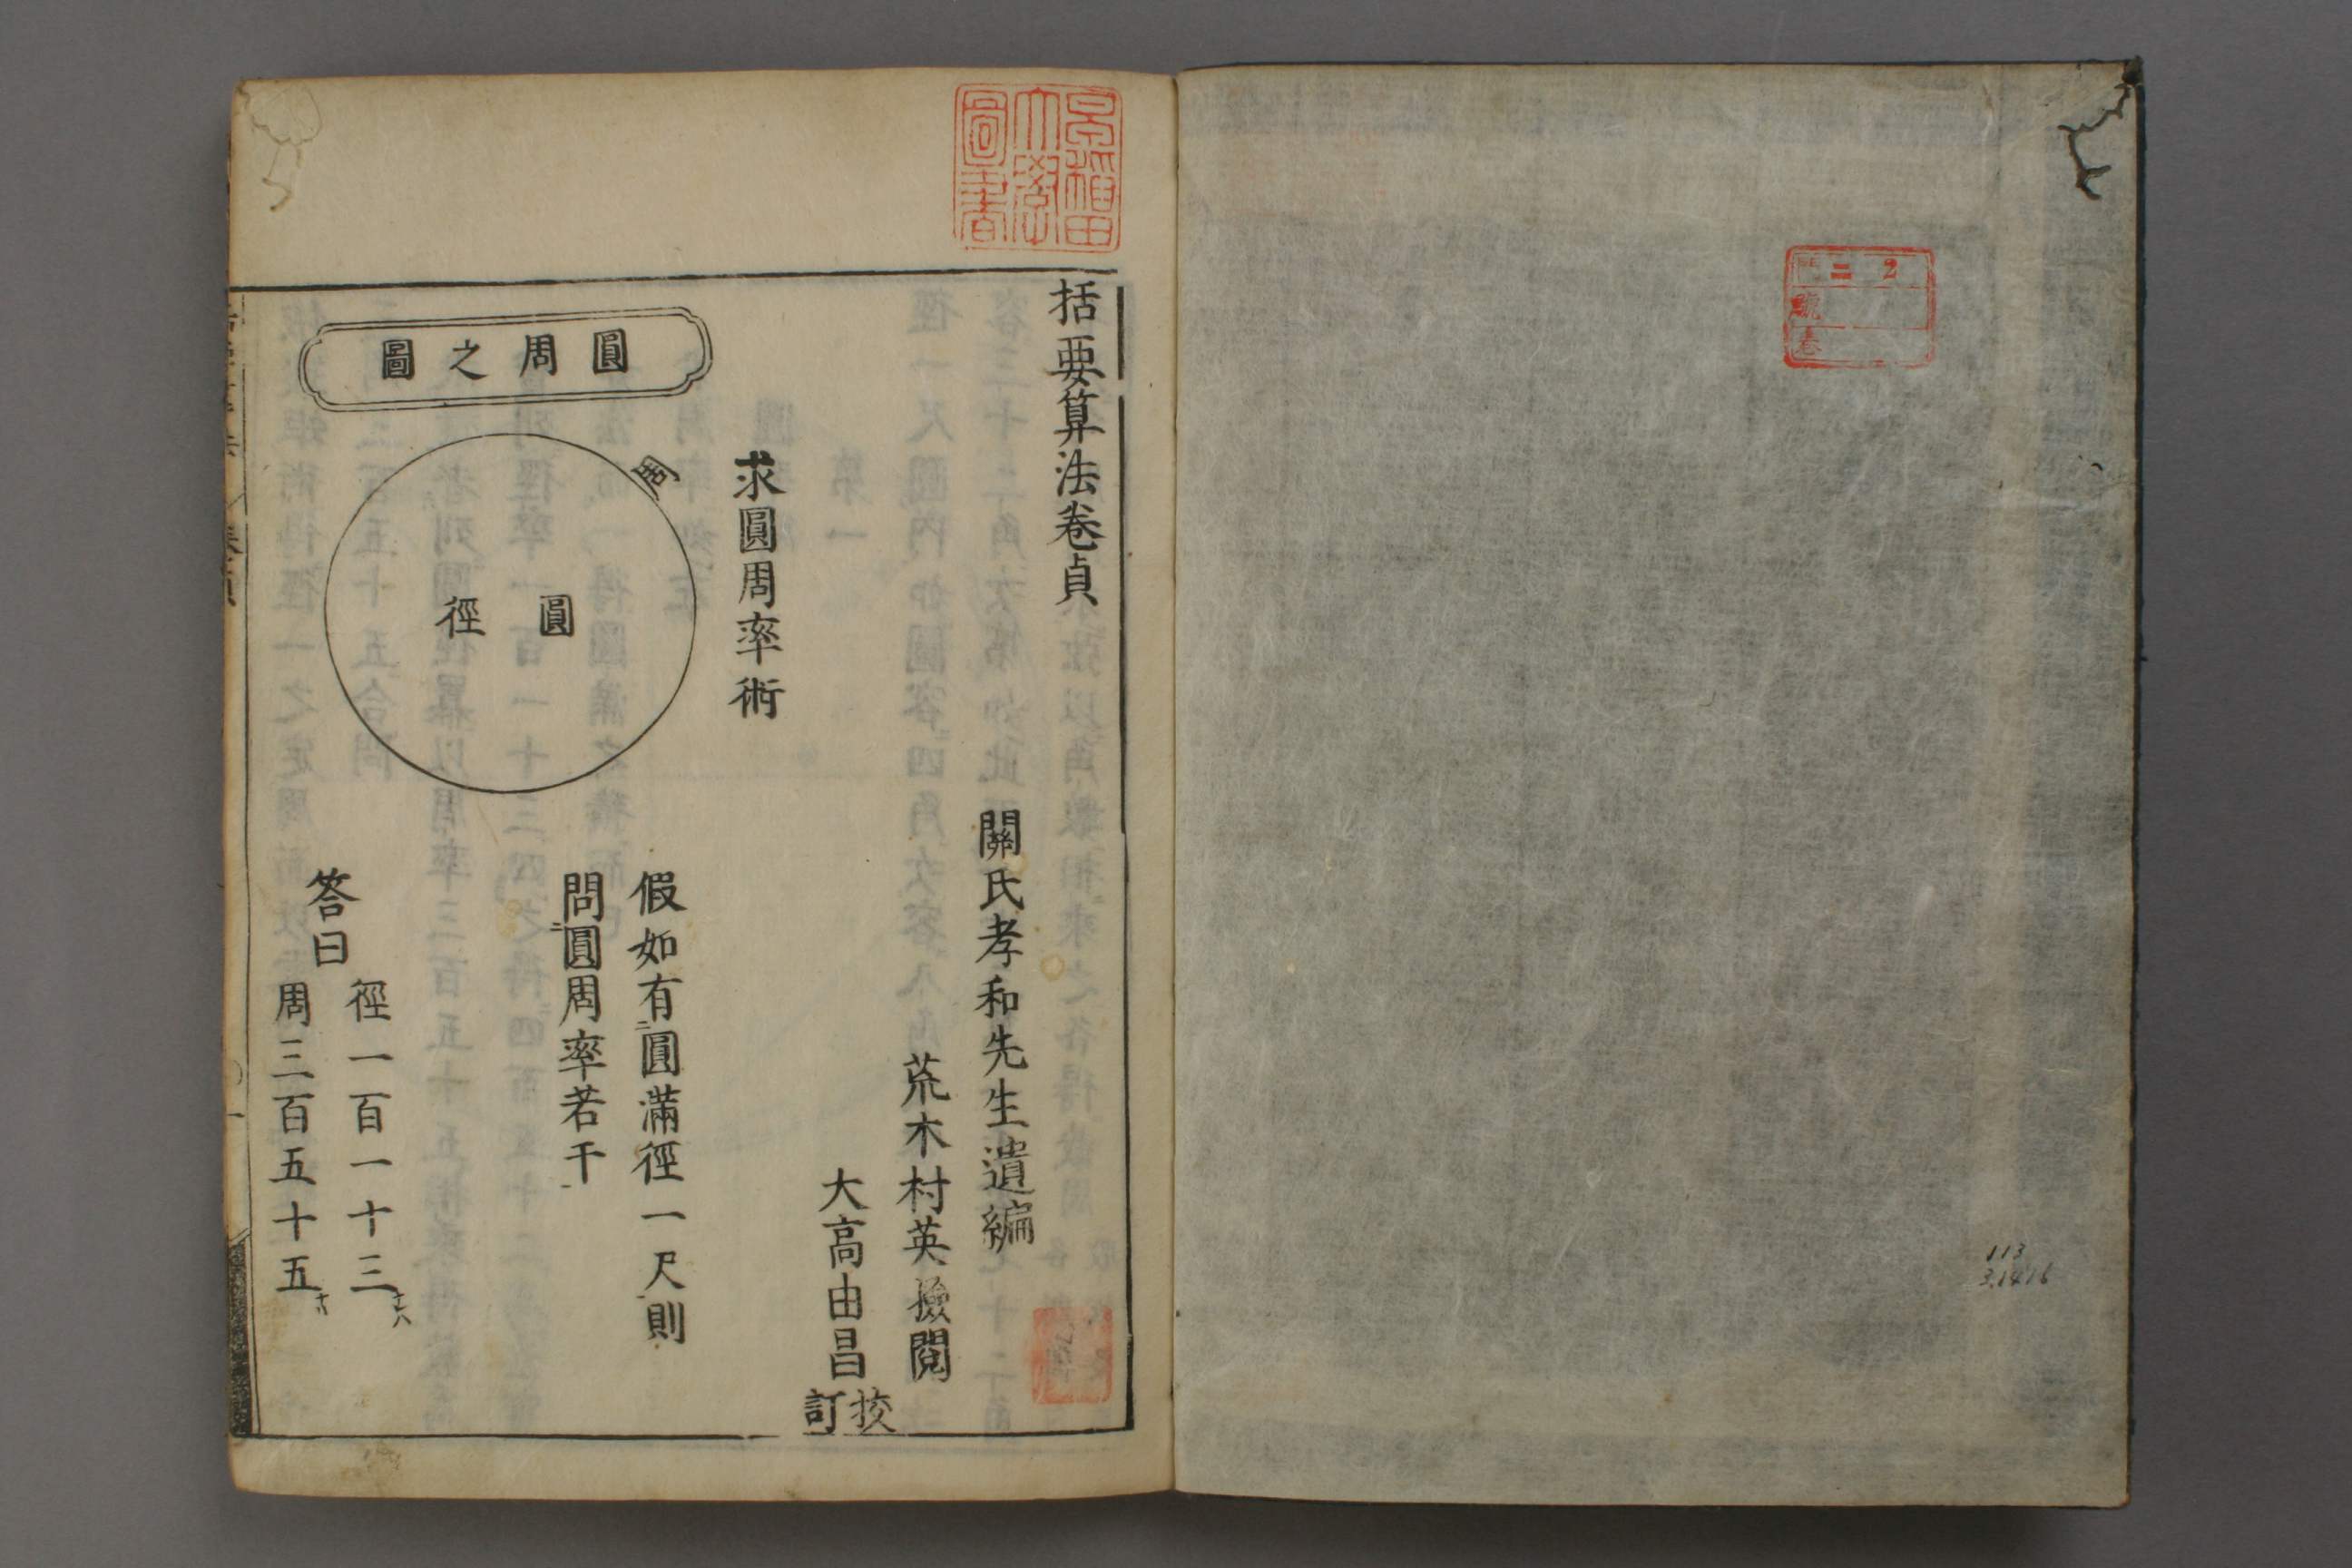 門 二 2
號
卷
113
3.1416
早稲田
大學
圖書
括要算法卷貞
關氏孝和先生遺編
荒木村英撿閱
大高由昌挍訂
求圓周率術
圓周之圖
周
圓徑
假如有圓滿徑一尺則
問圓周率若干
答曰
徑一百一十三
周三百五十五